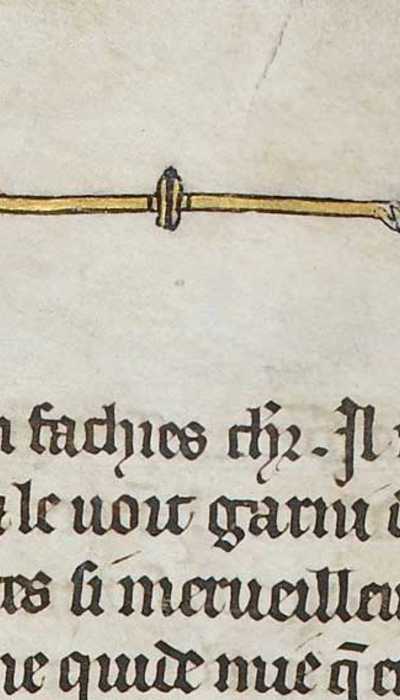 fachies chr̃. Il
le uoit garni
tes si merueilleu
ne quide mie q̃